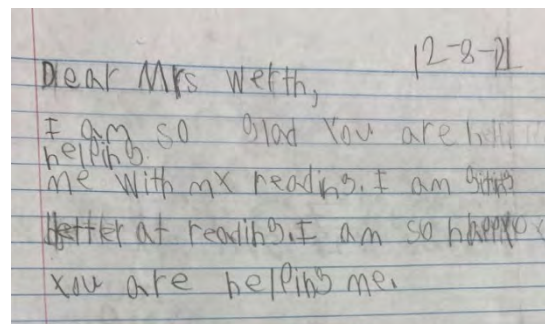 12-8-21
Dear Mrs Werth,
I am so glad You are
helping
me with my reading. I am giting
better at reading. I am so happy
you are helping me.